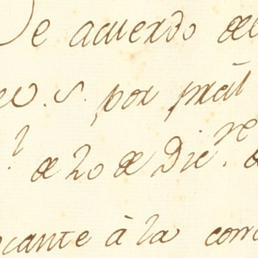 De acuerdo de
S. por
de 20 de Dic.re
cante à la